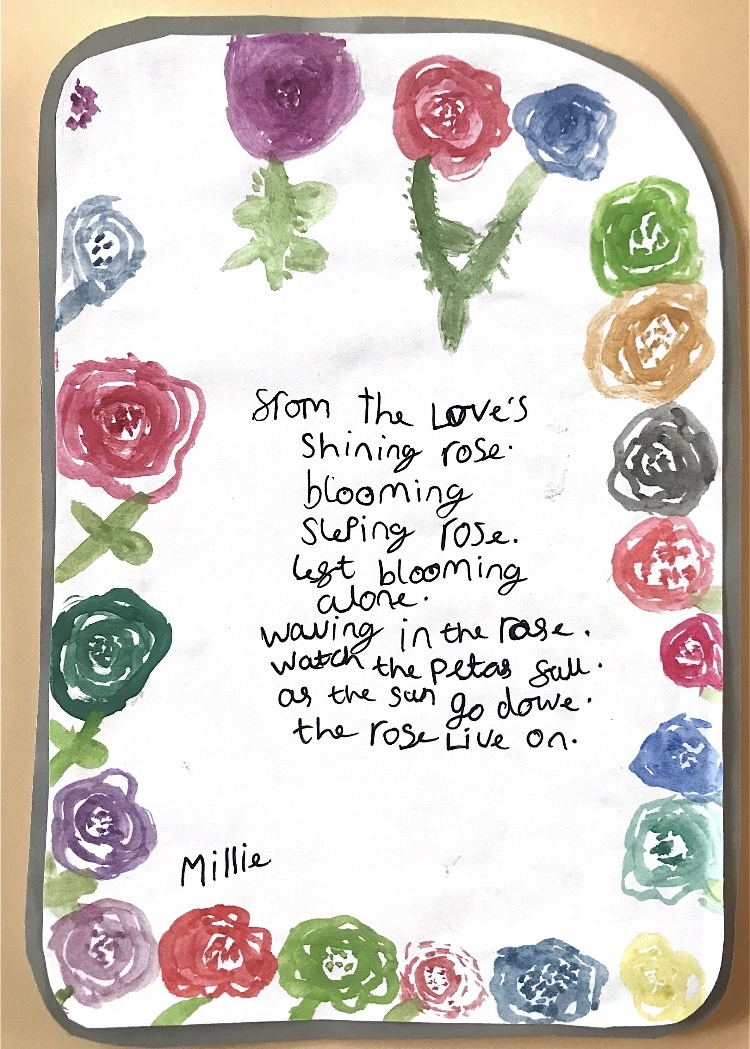 from the Love's
Shining rose.
blooming
Sleping rose.
left blooming
alone.
waving in the rose.
watch the petas fall.
as the sun go dowe.
the rose Live on.
Millie